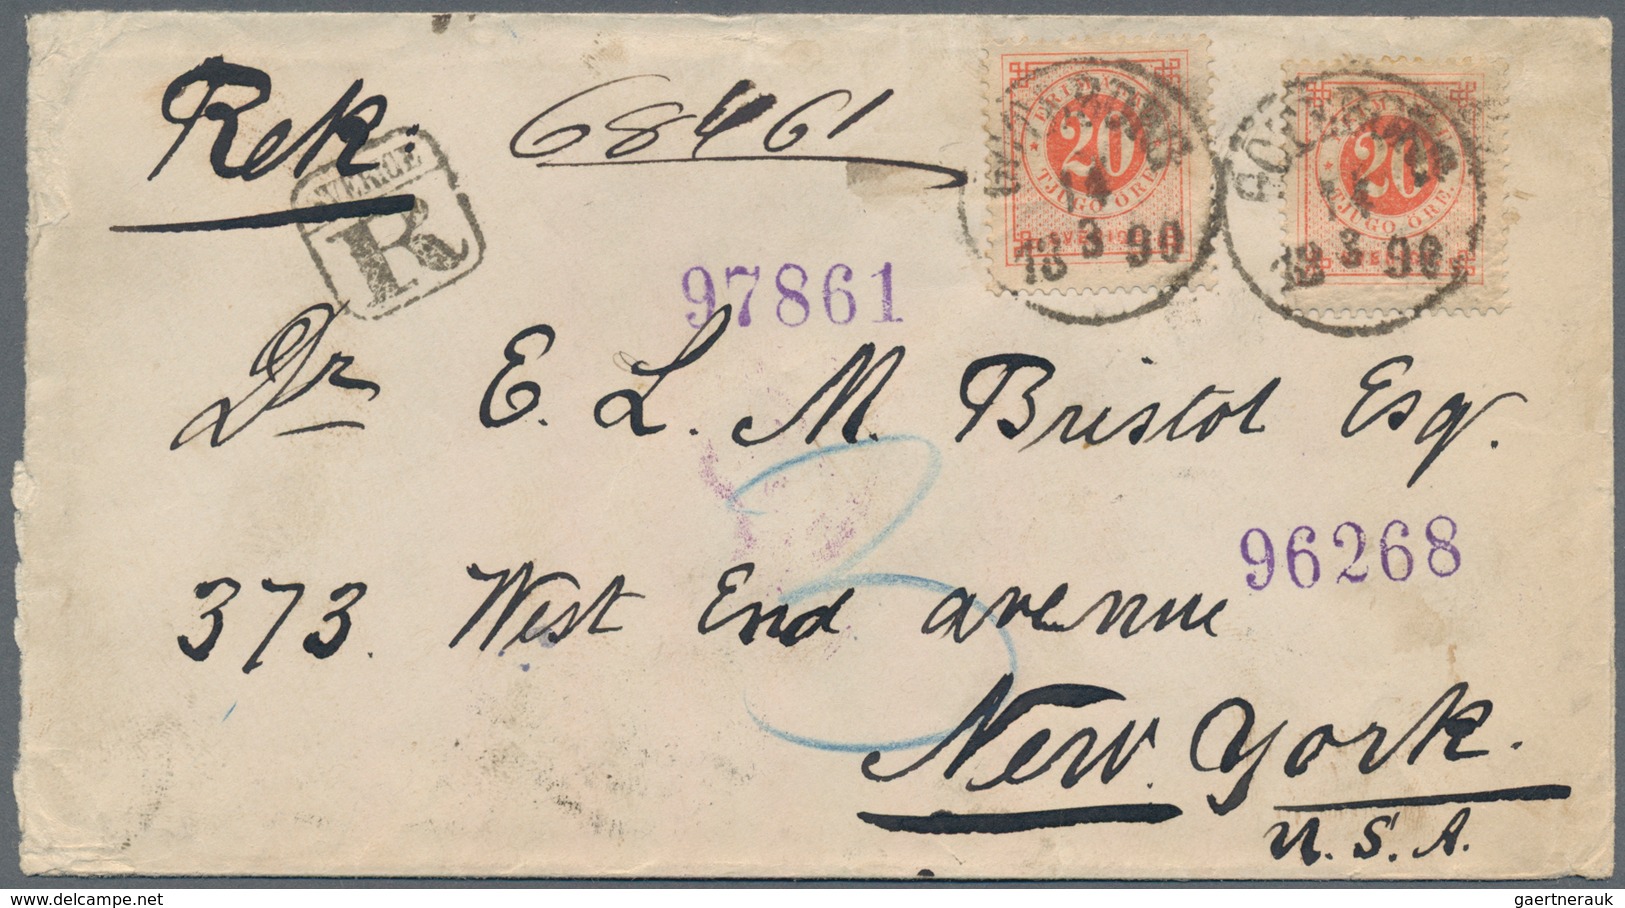 Rek. 68461
SVERIGE
R
FRIMÄRKE
20
TJUGO ÖRE
SVERIGE
14
18 3 90
20
TJUGO ÖRE
14
18 3 90
97861
Dr E. L. M. Bristol Esq.
3
96268
373. West End avenue
New York.
U.S.A.
www.delcampe.net
gaertnerauk